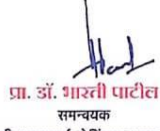 प्रा. डॉ. भारती पाटील
समन्वयक